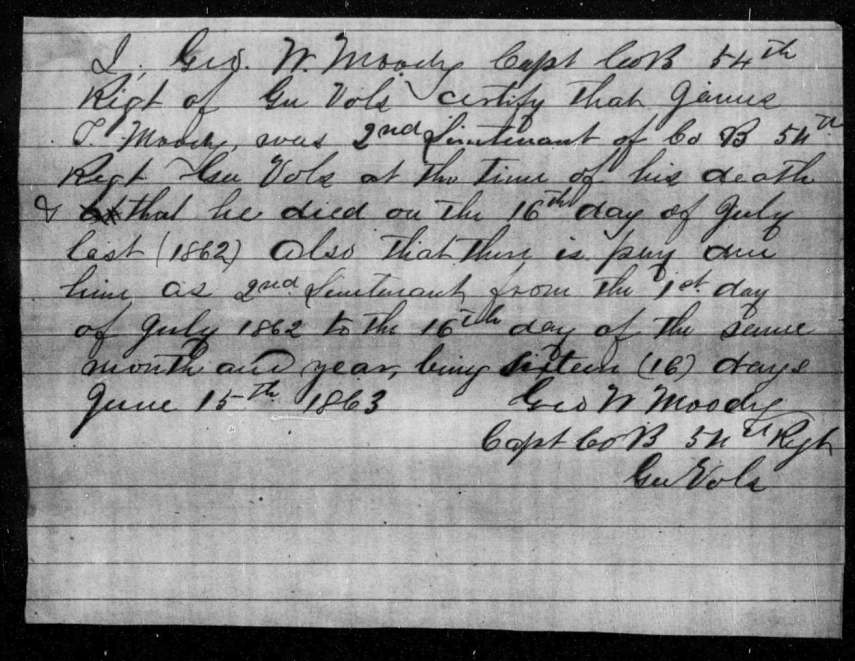 I, Geo. W. Moody Capt Co B 54th
Rigt of Ga Vols certify that James
T. Moody, was 2nd Lieutenant of Co B 54th
Regt Ga Vols at the time of his death
& that he died on the 16th day of July
last (1862) also that there is pay due
him as 2nd Lieutenant from the 1st day
of July 1862 to the 16th day of the same
month and year, being sixteen (16) days
June 15th 1863 Geo W Moody
Capt Co B 54th Regt
Ga Vols